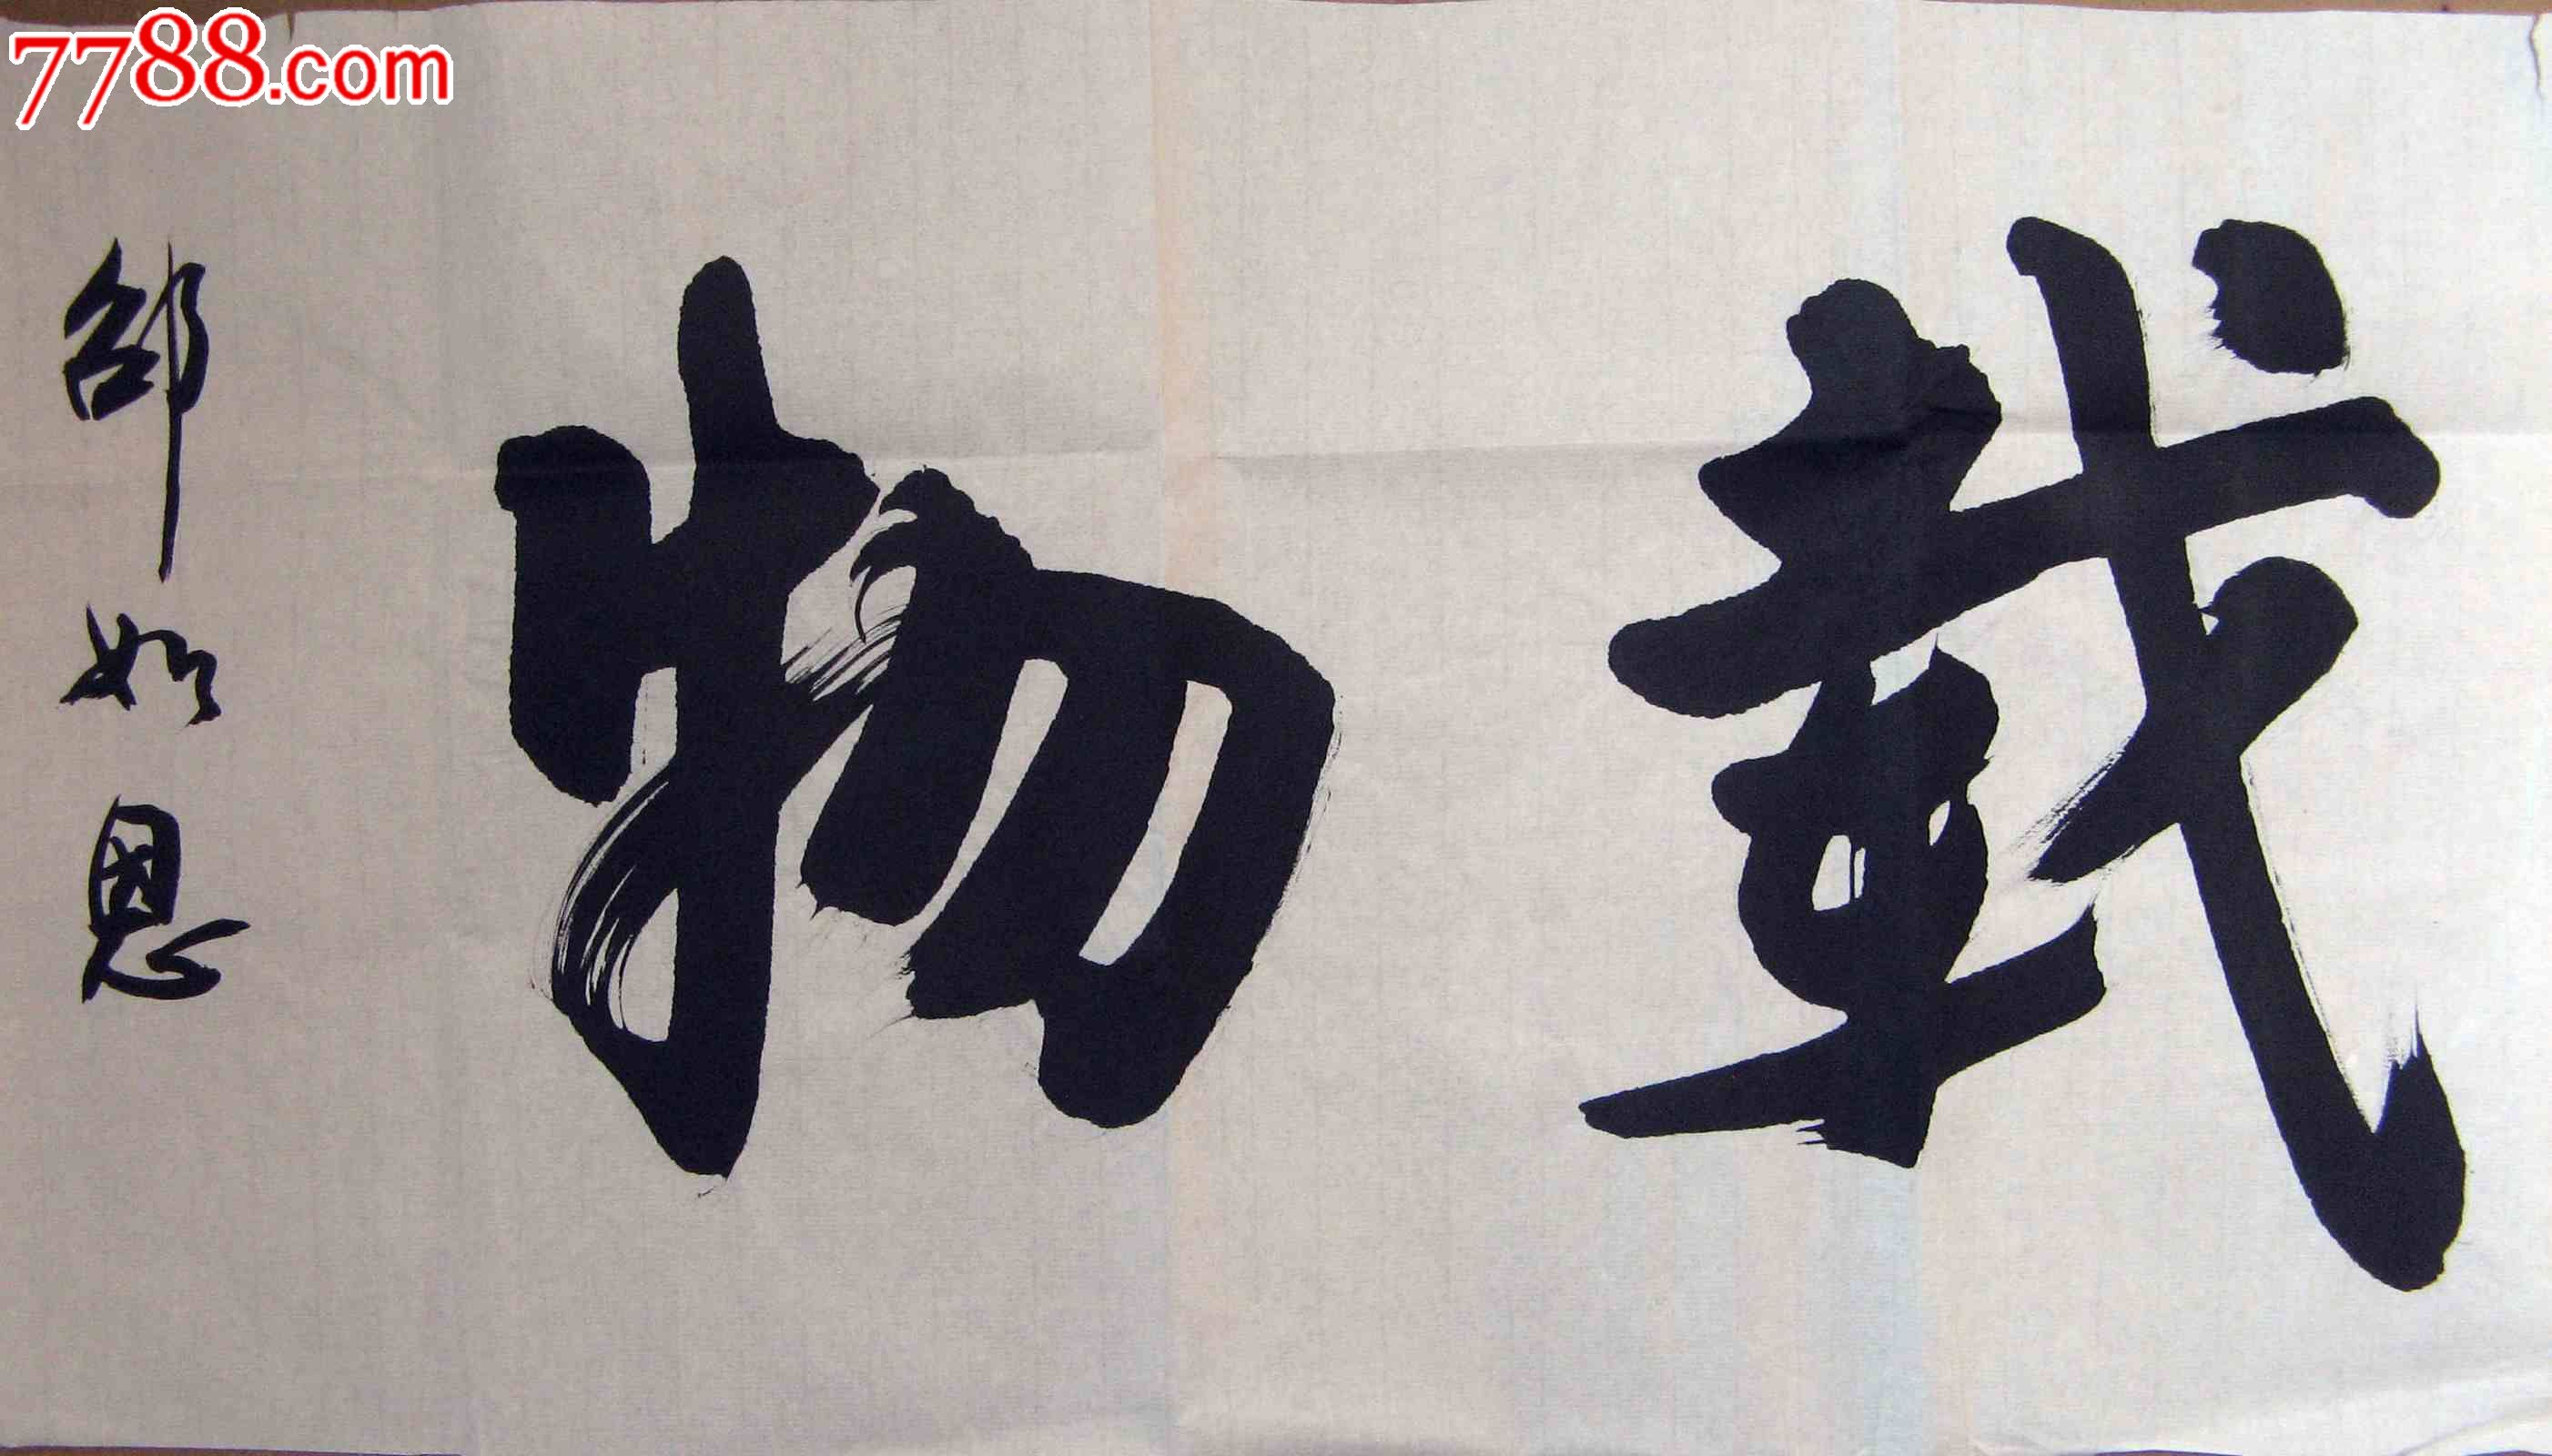 7788.com
載物
邵如恩